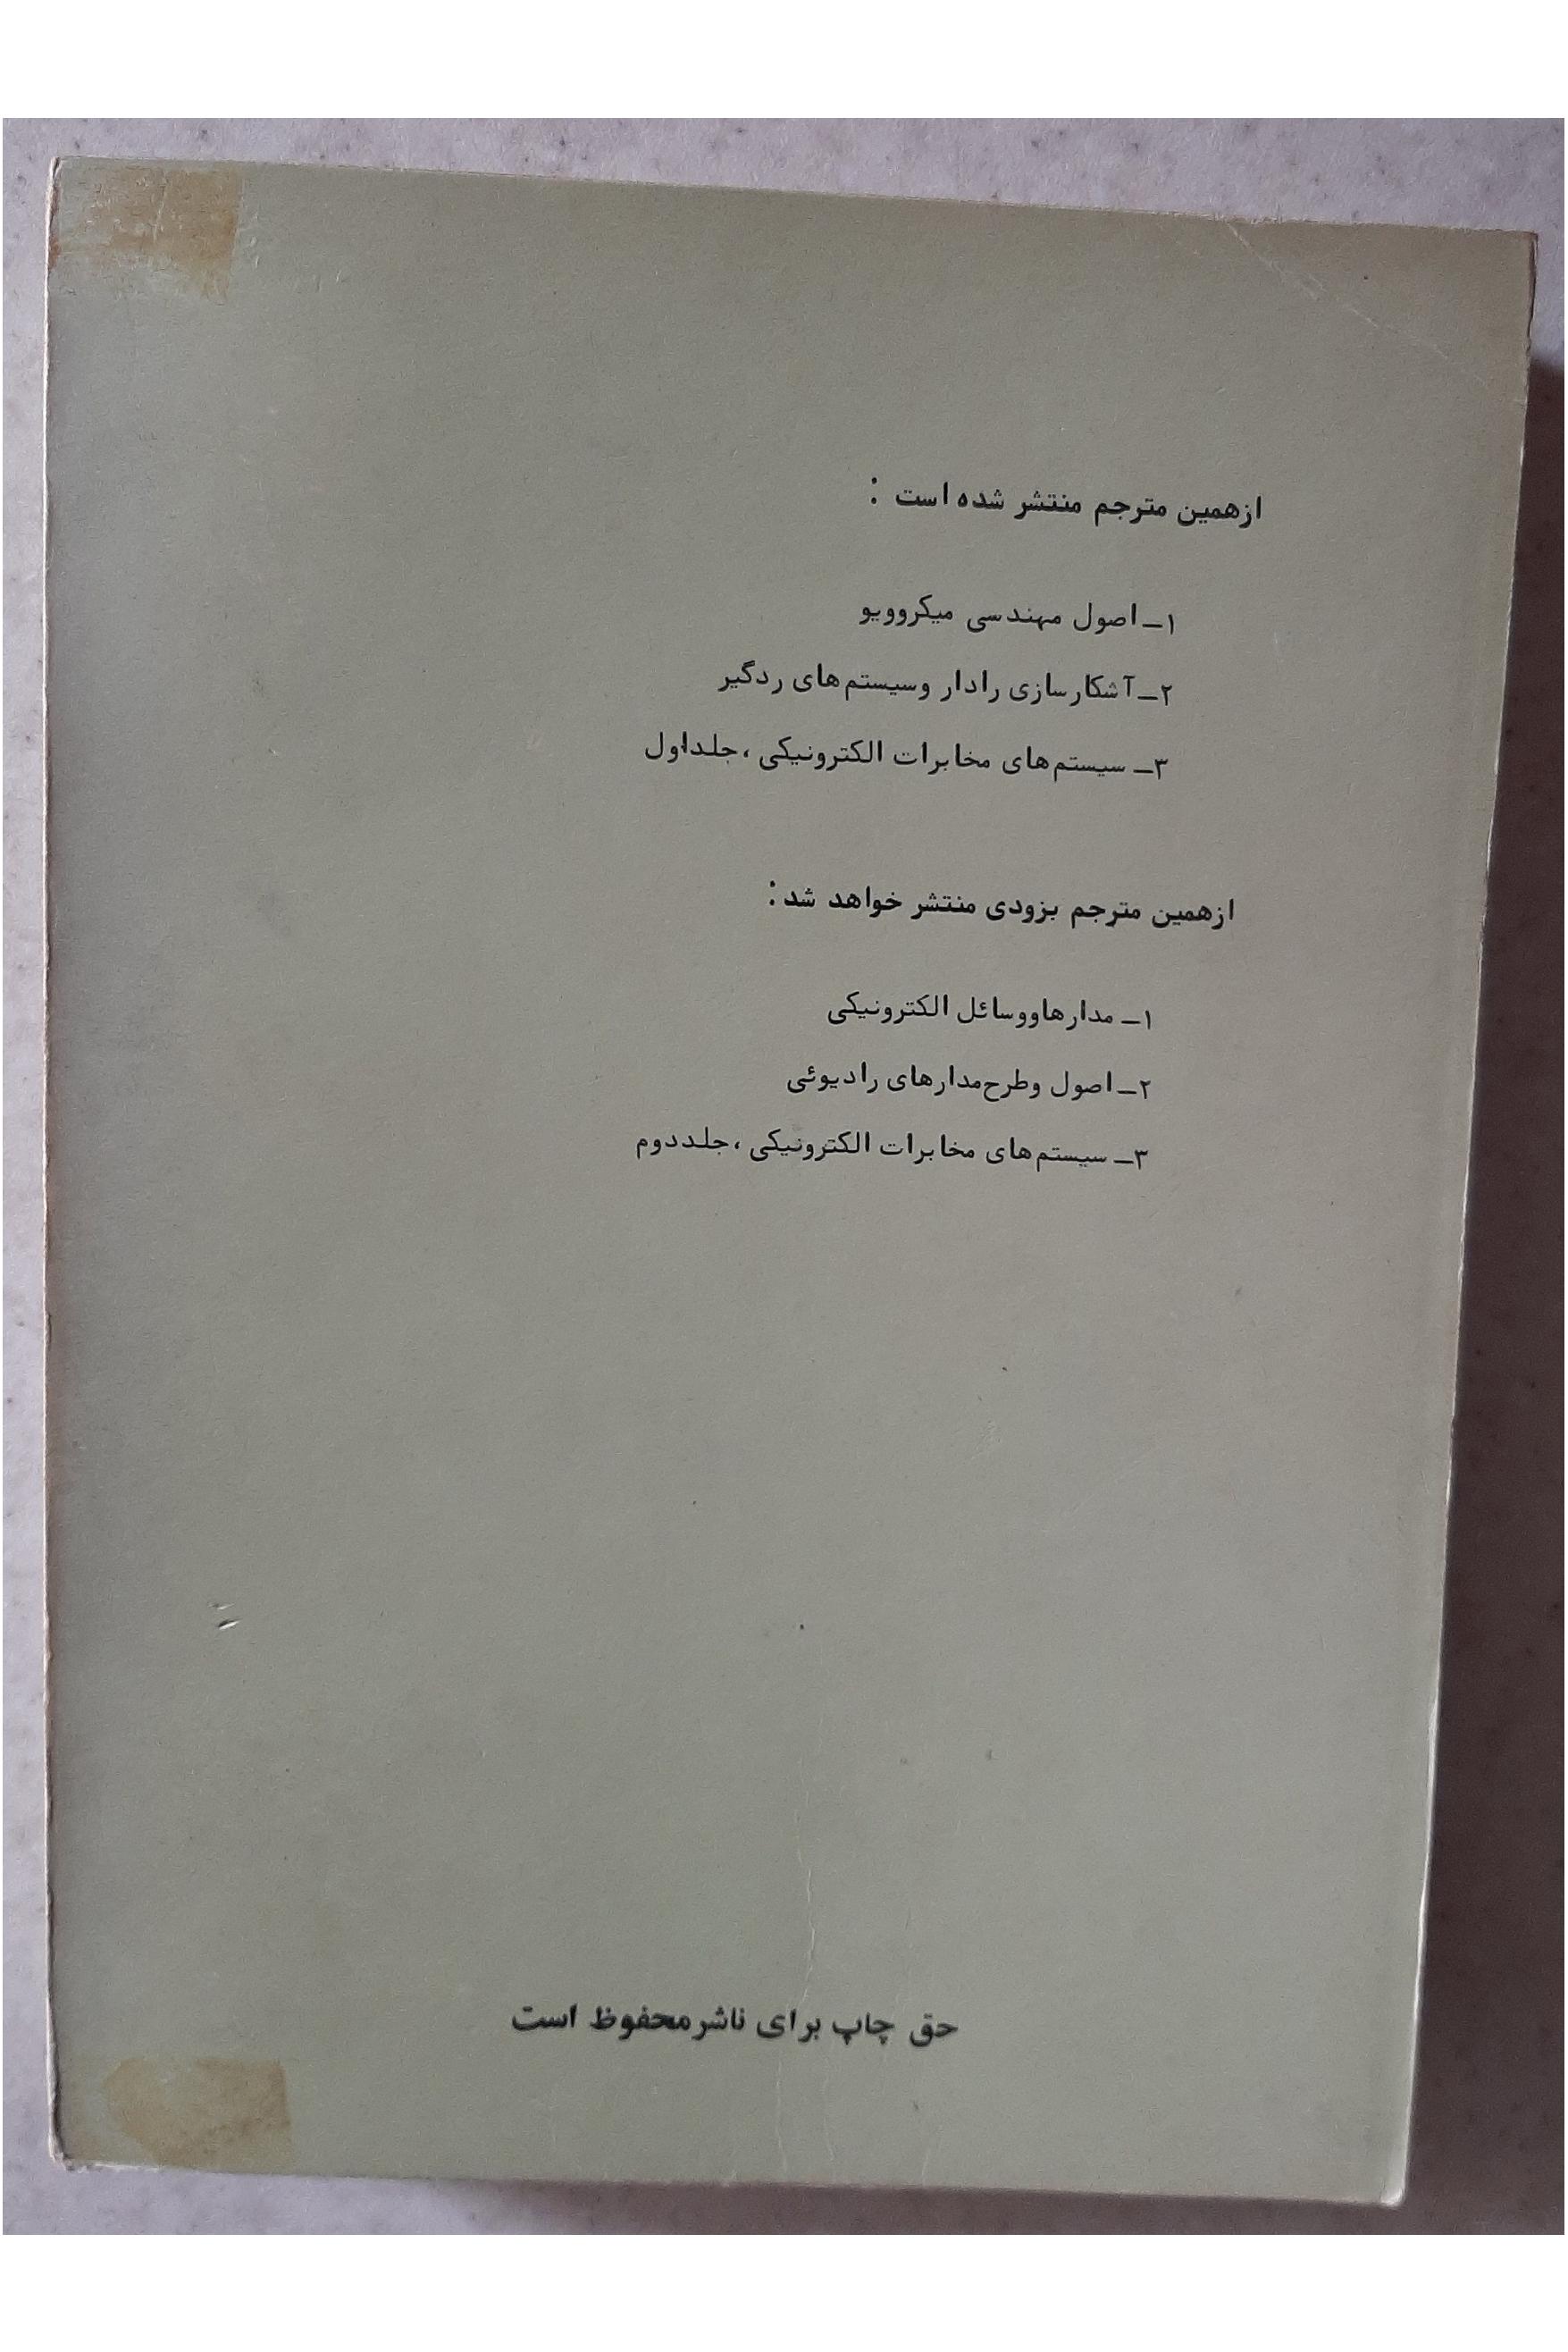 ازهمین مترجم منتشر شده است :
۱ــ اصول مهندسی میکروویو
۲ــ آشکارسازی رادار وسیستم‌های ردگیر
۳ــ سیستم‌های مخابرات الکترونیکی ، جلداول
ازهمین مترجم بزودی منتشر خواهد شد :
۱ــ مدارهاووسائل الکترونیکی
۲ــ اصول وطرح‌مدارهای رادیوئی
۳ــ سیستم‌های مخابرات الکترونیکی ، جلددوم
حق چاپ برای ناشر محفوظ است